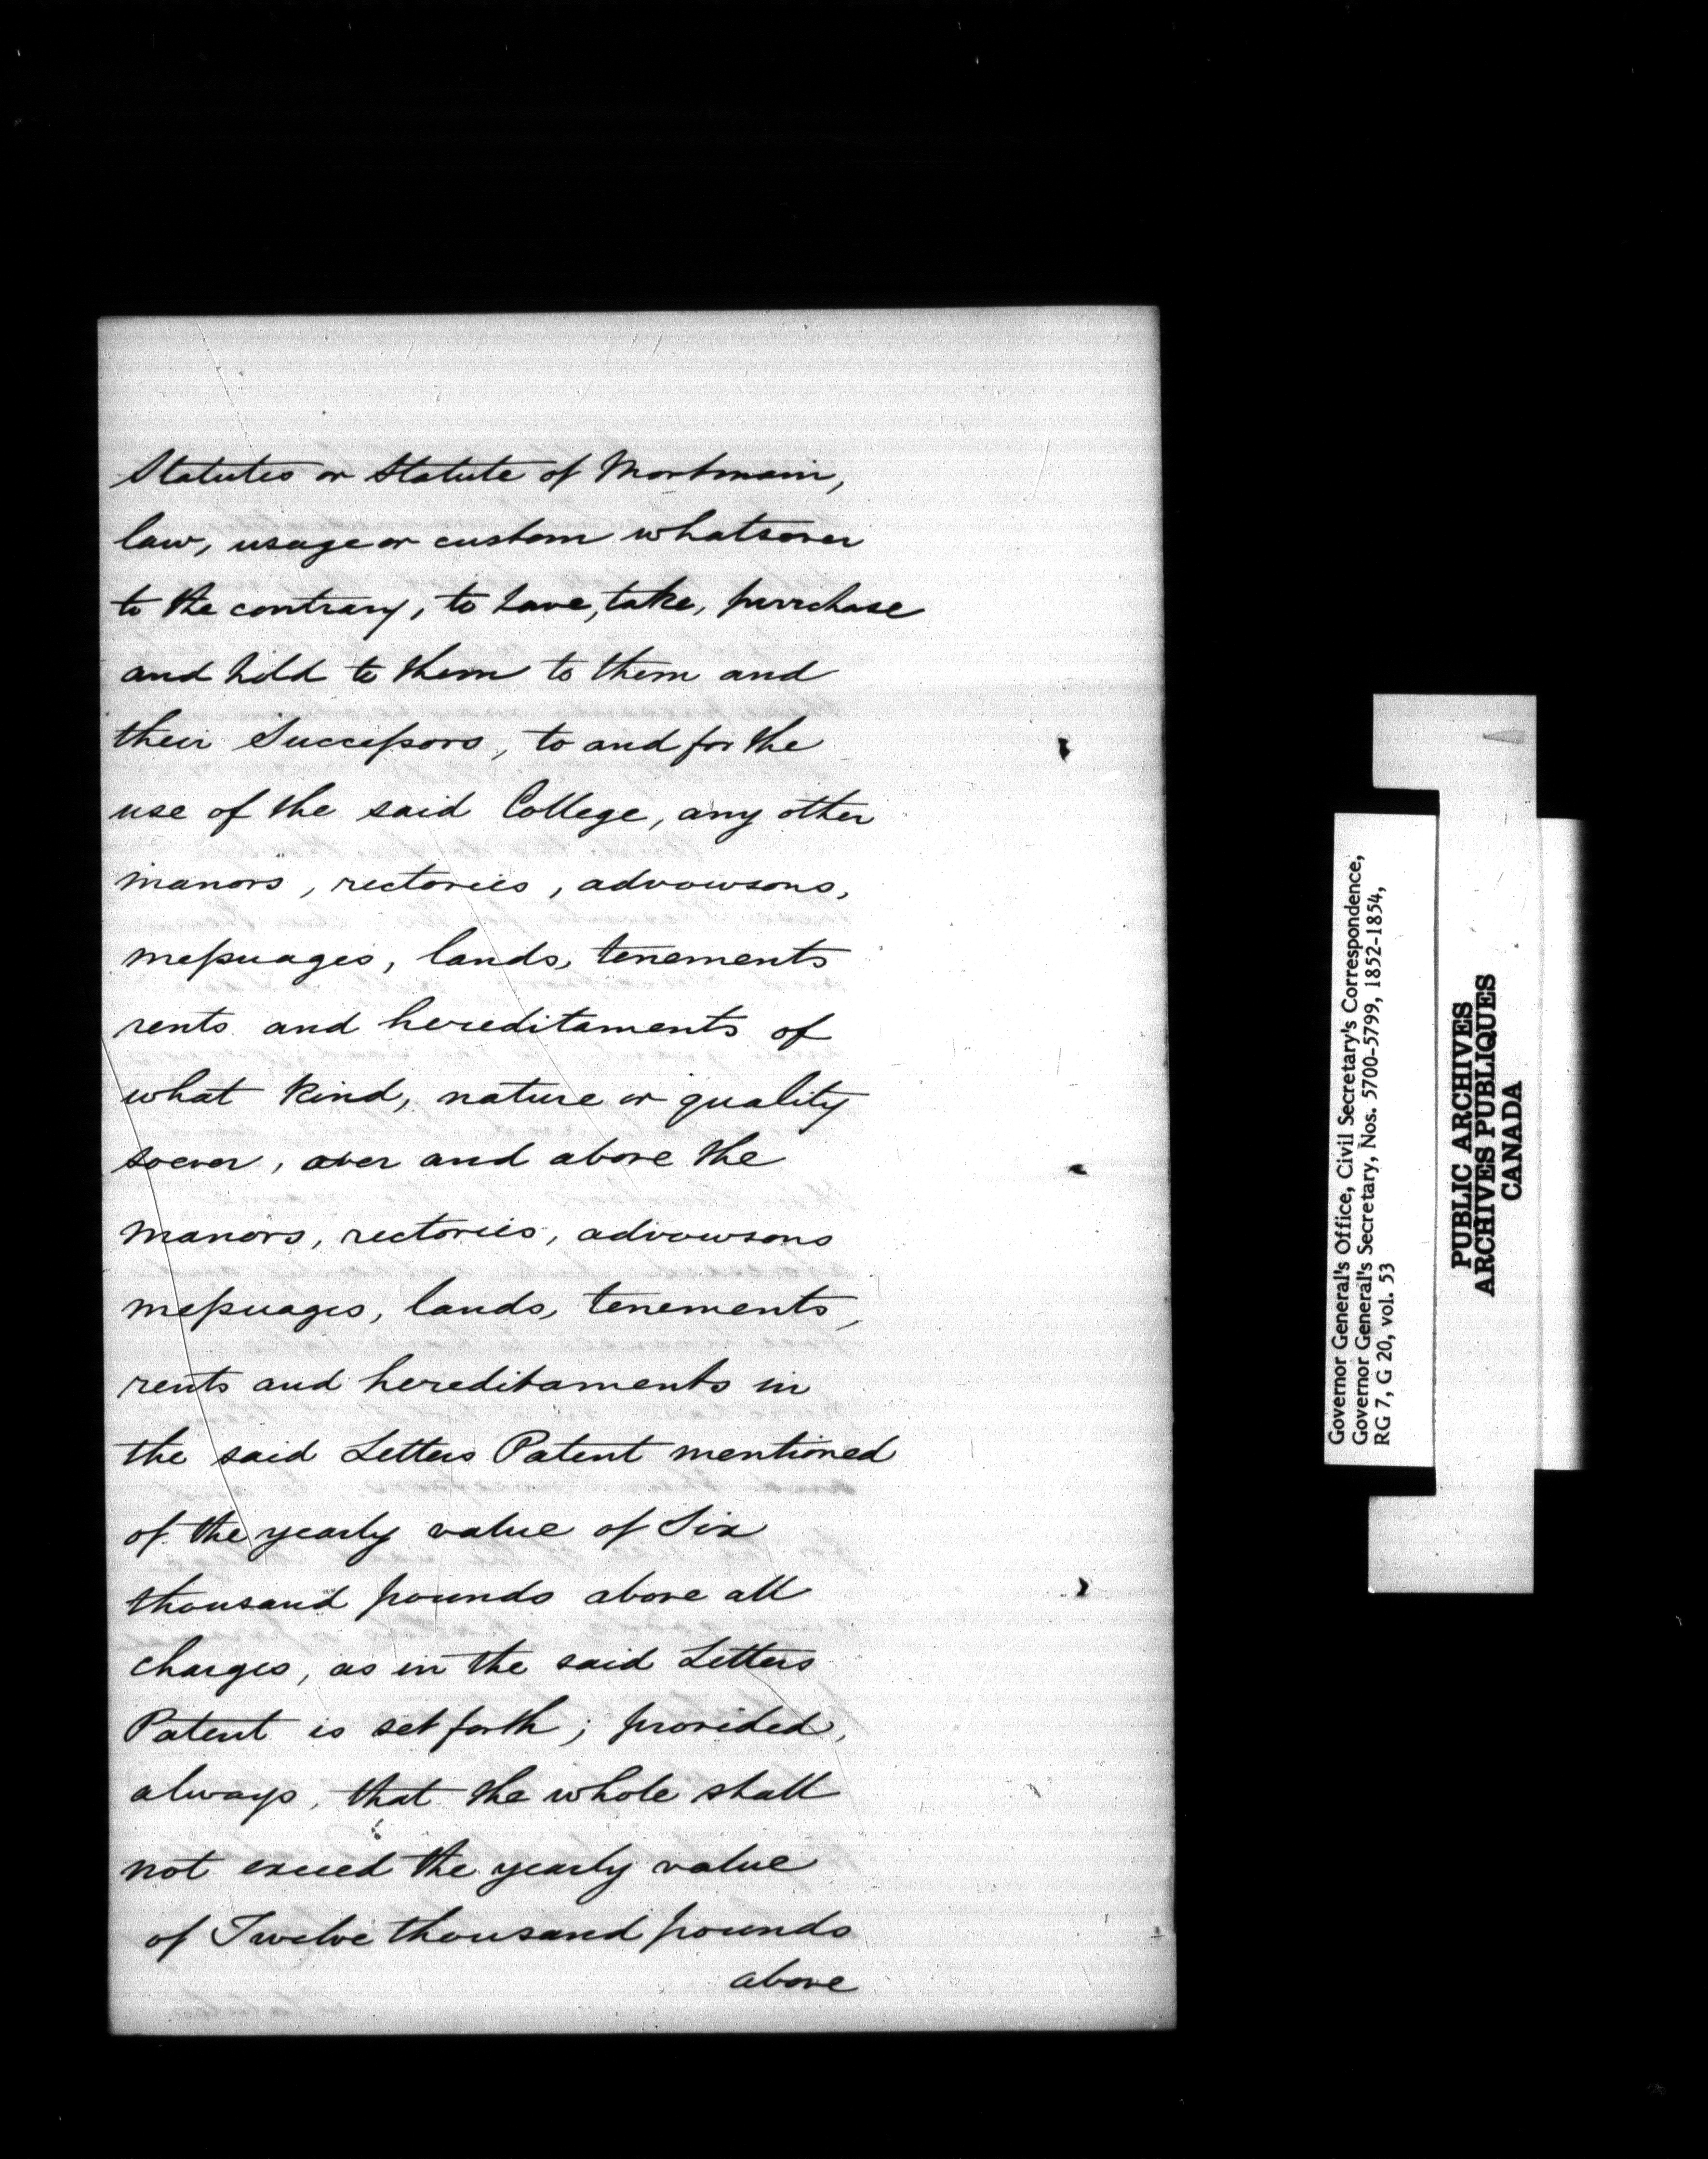 Statutes or Statute of Mortmain,
law, usage or custom whatsoever
to the contrary, to have, take, purchase
and hold to them to them and
their Successors, to and for the
use of the said College, any other
manors, rectories, advowsons,
messuages, lands, tenements
rents and hereditaments of
what kind, nature or quality
soever, over and above the
manors, rectories, advowsons
messuages, lands, tenements,
rents and hereditaments in
the said Letters Patent mentioned
of the yearly value of Six
thousand pounds above all
charges, as in the said Letters
Patent is set forth; provided,
always, that the whole shall
not exceed the yearly value
of Twelve thousand pounds
above
Governor General's Office, Civil Secretary's Correspondence,
Governor General's Secretary, Nos. 5700-5799, 1852-1854,
RG 7, G 20, vol. 53
PUBLIC ARCHIVES
ARCHIVES PUBLIQUES
CANADA